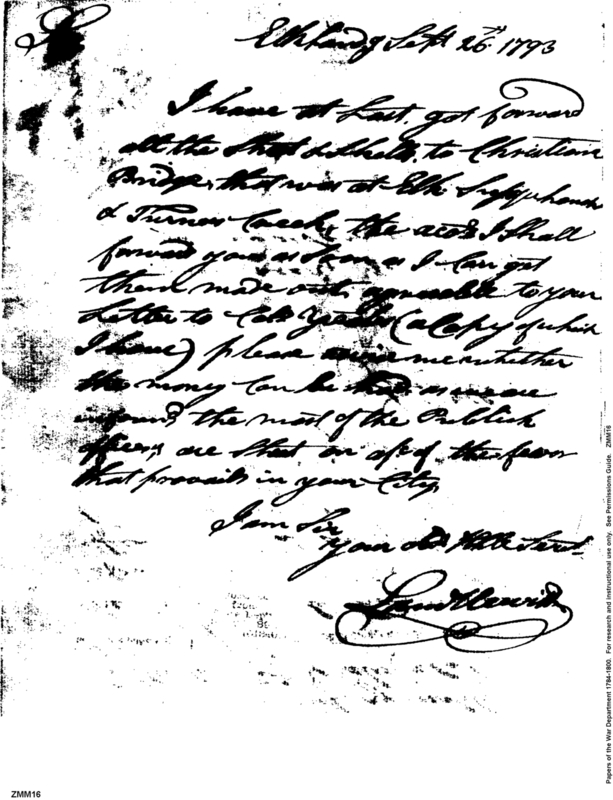 Sir
Elk Landg Sept 26th 1793
I have at Last, got forward
all the Shot & Shells, to Christiana
Bridge, that was at Elk Susquehanah
& Turner Creek, the accts I Shall
forward you as Soon as I Can get
them made out, agreeable to your
Letter to Colo (a Copy of which
I have) please me whether
the money Can be had as we are
the most of the Publick
offices are Shut on acct of the fever
that prevails in your City,
I am Sir
your Obt Hble Servt
ZMM16
Papers of the War Department 1784-1800. For research and instructional use only. See Permissions Guide. ZMM16